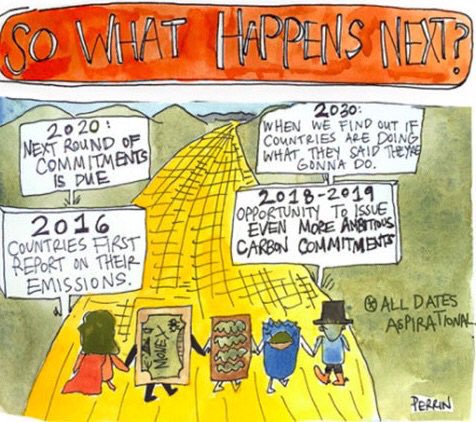 SO WHAT HAPPENS NEXT?
2020:
NEXT ROUND OF
COMMITMENTS
IS DUE
2030:
WHEN WE FIND OUT IF
COUNTRIES ARE DOING
WHAT THEY SAID THEY'RE
GONNA DO.
2016
COUNTRIES FIRST
REPORT ON THEIR
EMISSIONS.
2018-2019
OPPORTUNITY TO ISSUE
EVEN MORE AMBITIOUS
CARBON COMMITMENTS
* ALL DATES
ASPIRATIONAL
MONEY
PERRIN